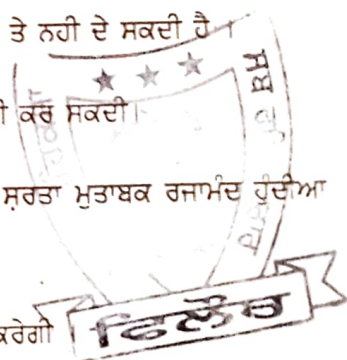 ਤੇ ਨਹੀ ਦੇ ਸਕਦੀ ਹੈ।
ਕਰ ਸਕਦੀ।
ਸ਼ਰਤਾ ਮੁਤਾਬਕ ਰਜਾਮੰਦ ਹੁੰਦੀਆ
ਕਰੇਗੀ
ਫਿਲੌਰ